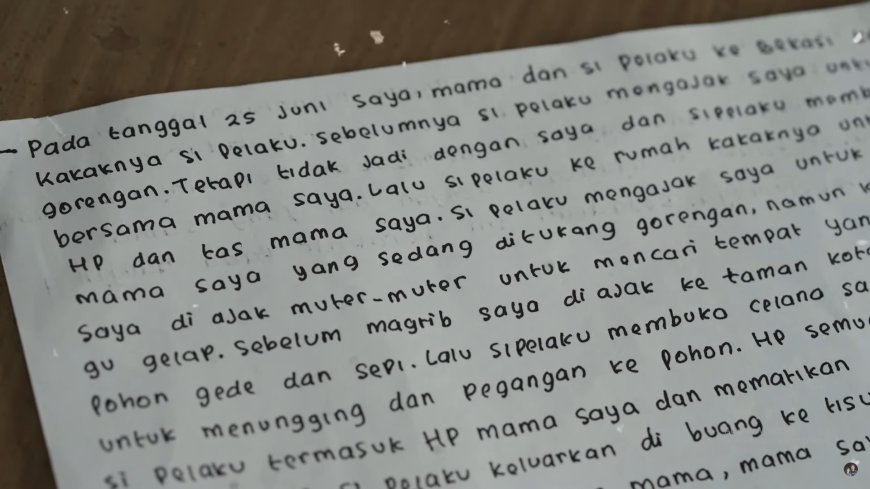 - Pada tanggal 25 Juni saya, mama dan si pelaku ke Bekasi
Kakaknya si pelaku. Sebelumnya si pelaku mengajak saya
gorengan. Tetapi tidak jadi dengan saya dan sipelaku
bersama mama saya. Lalu si pelaku ke rumah kakaknya
HP dan tas mama saya. Si pelaku mengajak saya untuk
mama saya yang sedang ditukang gorengan, namun
saya di ajak muter-muter untuk mencari tempat
gu gelap. Sebelum magrib saya di ajak ke taman
pohon gede dan sepi. Lalu sipelaku membuka celana
untuk menungging dan pegangan ke pohon. HP
si pelaku termasuk HP mama saya dan mematikan
si pelaku keluarkan di buang ke
mama, mama